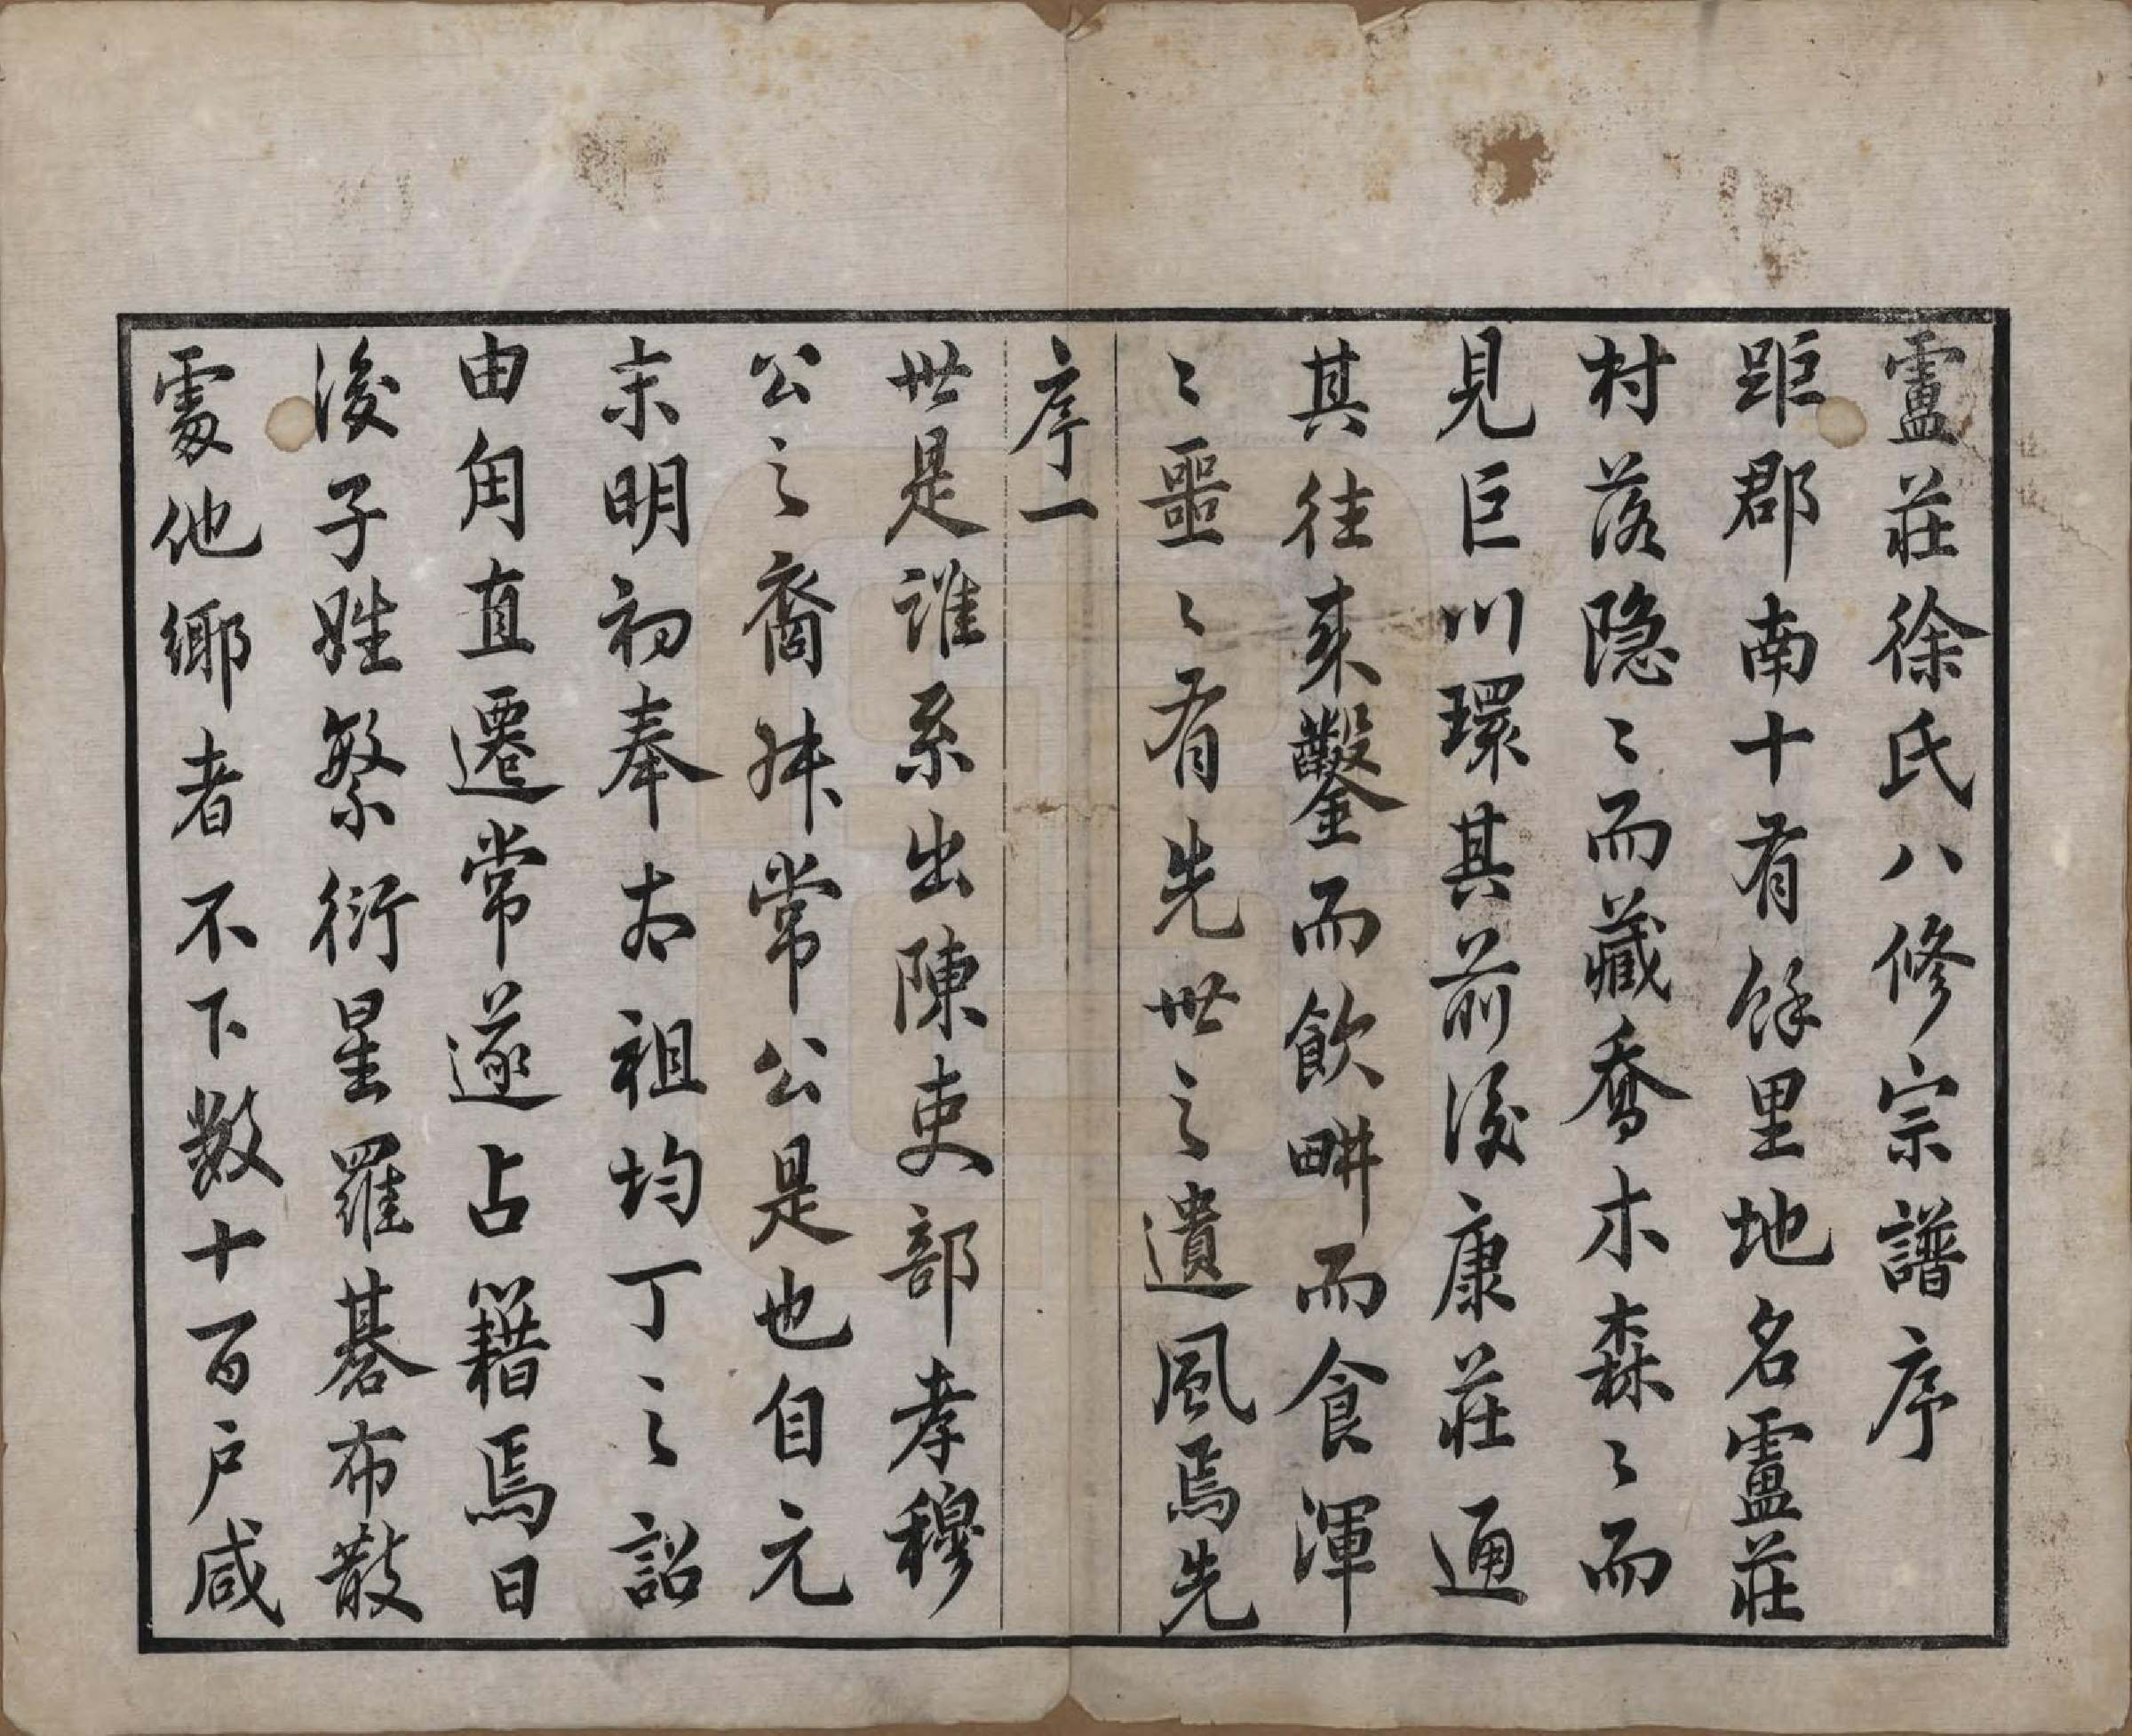 盧莊徐氏八修宗譜序
距郡南十有餘里地名盧莊
村落隐〻而藏喬木森〻而
見巨川環其前後康莊通
其往來鑿而飲畊而食渾
〻噩〻有先世之遺風焉先
序一
世是誰系出陳吏部孝穆
公之裔牀常公是也自元
末明初奉太祖均丁之詔
由甪直遷常遂占籍焉日
後子姓繁衍星羅碁布散
處他鄉者不下數十百户咸